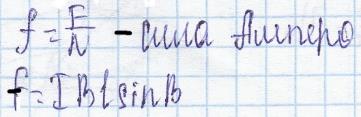 f = F/N - сила Ампера
f = I B l sin B